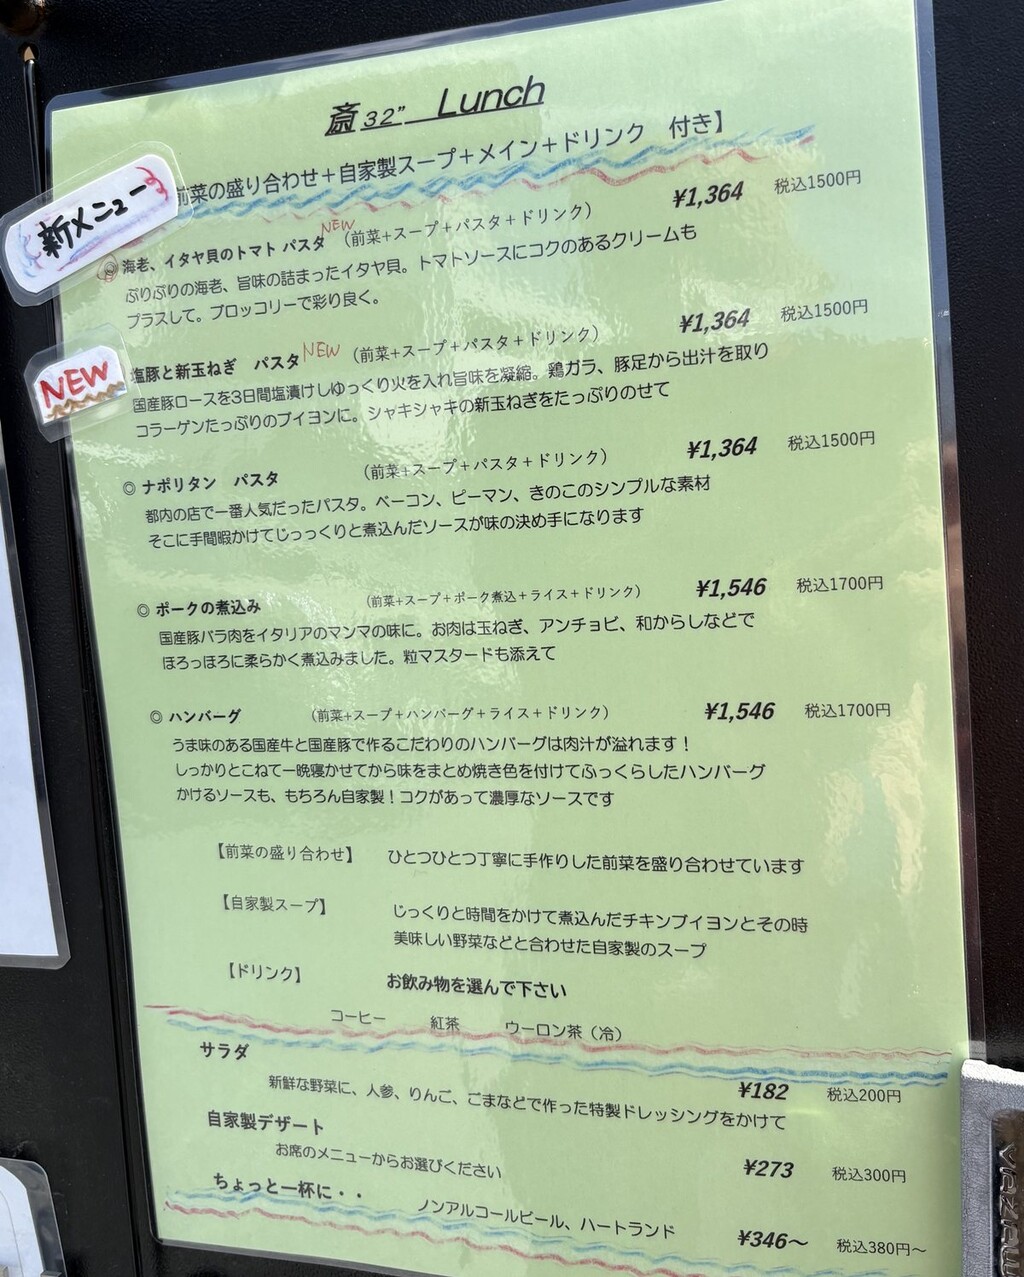 斎32” Lunch
前菜の盛り合わせ＋自家製スープ＋メイン＋ドリンク　付き】
新メニュー
¥1,364 税込1500円
◎ 海老、イタヤ貝のトマト パスタ NEW （前菜+スープ＋パスタ＋ドリンク）
ぷりぷりの海老、旨味の詰まったイタヤ貝。トマトソースにコクのあるクリームも
プラスして。ブロッコリーで彩り良く。
¥1,364 税込1500円
NEW
塩豚と新玉ねぎ　パスタ NEW （前菜+スープ＋パスタ＋ドリンク）
国産豚ロースを3日間塩漬けしゆっくり火を入れ旨味を凝縮。鶏ガラ、豚足から出汁を取り
コラーゲンたっぷりのブイヨンに。シャキシャキの新玉ねぎをたっぷりのせて
¥1,364 税込1500円
◎ ナポリタン　パスタ （前菜+スープ＋パスタ＋ドリンク）
都内の店で一番人気だったパスタ。ベーコン、ピーマン、きのこのシンプルな素材
そこに手間暇かけてじっっくりと煮込んだソースが味の決め手になります
¥1,546 税込1700円
◎ ポークの煮込み （前菜+スープ＋ポーク煮込＋ライス＋ドリンク）
国産豚バラ肉をイタリアのマンマの味に。お肉は玉ねぎ、アンチョビ、和からしなどで
ほろっほろに柔らかく煮込みました。粒マスタードも添えて
◎ ハンバーグ （前菜+スープ＋ハンバーグ＋ライス＋ドリンク） ¥1,546 税込1700円
うま味のある国産牛と国産豚で作るこだわりのハンバーグは肉汁が溢れます！
しっかりとこねて一晩寝かせてから味をまとめ焼き色を付けてふっくらしたハンバーグ
かけるソースも、もちろん自家製！コクがあって濃厚なソースです
【前菜の盛り合わせ】 ひとつひとつ丁寧に手作りした前菜を盛り合わせています
【自家製スープ】 じっくりと時間をかけて煮込んだチキンブイヨンとその時
美味しい野菜などと合わせた自家製のスープ
【ドリンク】 お飲み物を選んで下さい
コーヒー 紅茶 ウーロン茶（冷）
サラダ ¥182 税込200円
新鮮な野菜に、人参、りんご、ごまなどで作った特製ドレッシングをかけて
自家製デザート
お席のメニューからお選びください ¥273 税込300円
ちょっと一杯に・・ ノンアルコールビール、ハートランド ¥346～ 税込380円～